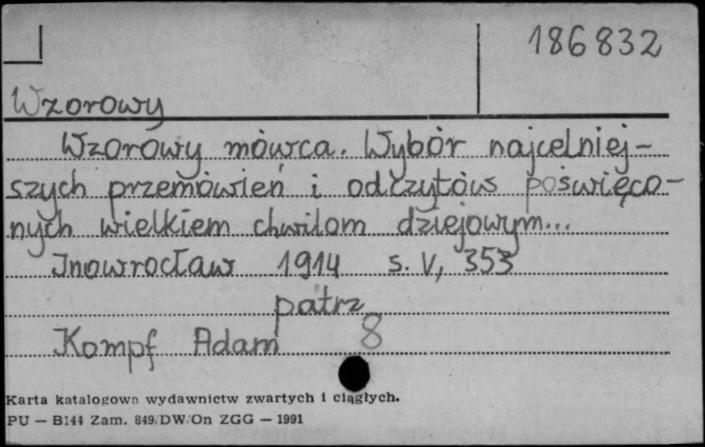 186832
Wzorowy
Wzorowy mówca. Wybór najcelniej-
szych przemówień i odczytów poświęco-
nych wielkiem chwilom dziejowym...
Inowrocław 1914 s. V, 353
patrz
Kompf Adam 8
Karta katalogowa wydawnictw zwartych i ciągłych.
PU — B144 Zam. 849/DW/On ZGG — 1991